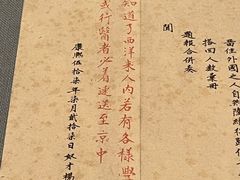 住外國之人自
搭回人數彙冊
題報合併奏
聞
知道了西洋來人内若有各樣學
或行醫者必着速送至京中
康熙伍拾柒年柒月貳拾柒日奴才楊